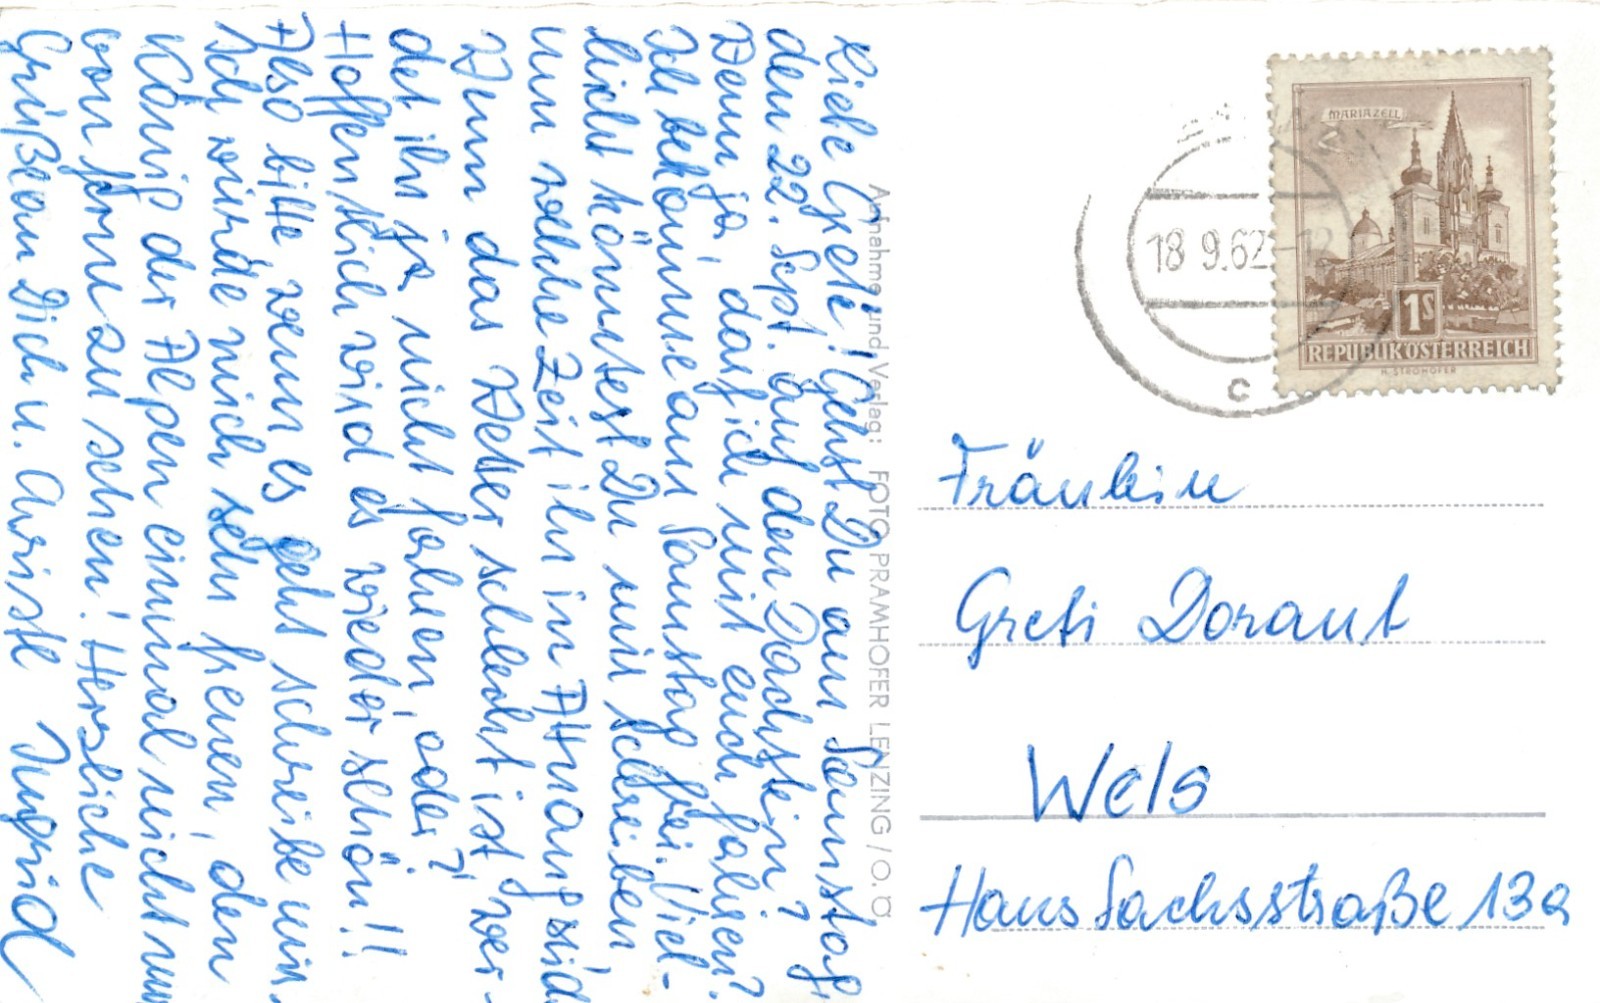 Liebe Greti! Gehst Du am Samstag,
den 22. Sept. auf den Dachstein?
Wenn ja, darf ich mit euch fahren?
Ich bekomme am Samstag frei. Viel-
leicht könntest Du mir schreiben
um welche Zeit ihr in Attnang seid.
Wenn das Wetter schlecht ist, wer-
det ihr ja nicht fahren, oder?
Hoffentlich wird es wieder schön!!
Also bitte, wenn es geht schreibe mir.
Ich würde mich sehr freuen, den
König der Alpen einmal nicht nur
von ferne zu sehen! Herzliche
Grüße an Dich u. Christl Ingrid
Aufnahme und Verlag: FOTO PRAMHOFER LENZING / O.Ö.
MARIAZELL
1S
REPUBLIK ÖSTERREICH
H. STROHOFER
18 9.62-12
c
Fräulein
Greti Doraut
Wels
Hans Sachsstraße 13a